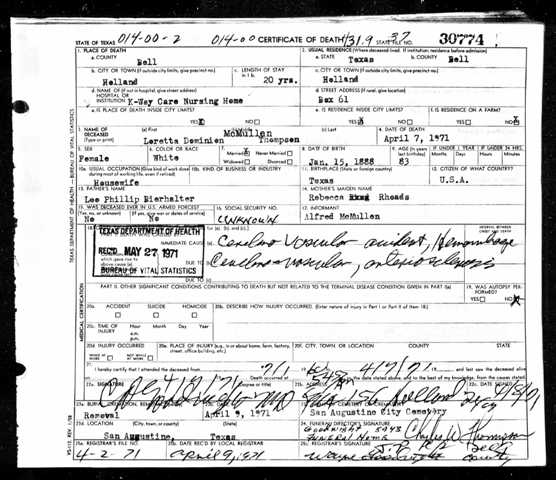 STATE OF TEXAS 014-00-2 014-00 CERTIFICATE OF DEATH 431.9 STATE FILE NO. 37 30774
1. PLACE OF DEATH 2. USUAL RESIDENCE (Where deceased lived. If institution, residence before admission)
a. COUNTY Bell a. STATE Texas b. COUNTY Bell
b. CITY OR TOWN (If outside city limits, give precinct no.) c. LENGTH OF STAY in 1 b. c. CITY OR TOWN (If outside city limits, give precinct no.)
Holland 20 yrs. Holland
d. NAME OF (If not in hospital, give street address) HOSPITAL OR INSTITUTION K-Way Care Nursing Home d. STREET ADDRESS (If rural, give location) Box 61
e. IS PLACE OF DEATH INSIDE CITY LIMITS? YES X NO e. IS RESIDENCE INSIDE CITY LIMITS? YES NO f. IS RESIDENCE ON A FARM? YES NO X
3. NAME OF DECEASED (Type or print) (a) First (b) Middle McMullen (c) Last 4. DATE OF DEATH
Loretta Dominion Thompson April 7, 1971
5. SEX 6. COLOR OR RACE 7. Married Never Married 8. DATE OF BIRTH 9. AGE (In years last birthday) IF UNDER 1 YEAR IF UNDER 24 HRS.
Female White Widowed Divorced Jan. 15, 1888 83 Months Days Hours Min.
10a. USUAL OCCUPATION (Give kind of work done during most of working life, even if retired) 10b. KIND OF BUSINESS OR INDUSTRY 11. BIRTHPLACE (State or foreign country) 12. CITIZEN OF WHAT COUNTRY?
Housewife Texas U.S.A.
13. FATHER'S NAME 14. MOTHER'S MAIDEN NAME
Lee Phillip Bierhalter Rebecca Rhoads
15. WAS DECEASED EVER IN U.S. ARMED FORCES? 16. SOCIAL SECURITY NO. 17. INFORMANT
(Yes, no, or unknown) (If yes, give war or dates of service)
No No UNKNOWN Alfred McMullen
TEXAS DEPARTMENT OF HEALTH
REC'D MAY 27 1971
BUREAU OF VITAL STATISTICS
IMMEDIATE CAUSE (a) Cerebro vascular accident, Hemorrhage
DUE TO (b) Cerebro-vascular, arteriosclerosis
DUE TO (c)
INTERVAL BETWEEN ONSET AND DEATH
PART II. OTHER SIGNIFICANT CONDITIONS CONTRIBUTING TO DEATH BUT NOT RELATED TO THE TERMINAL DISEASE CONDITION GIVEN IN PART I(a) 19. WAS AUTOPSY PERFORMED?
YES NO X
20a. ACCIDENT SUICIDE HOMICIDE 20b. DESCRIBE HOW INJURY OCCURRED. (Enter nature of injury in Part I or Part II of item 18)
20c. TIME OF INJURY Hour Month Day Year
a.m.
p.m.
20d. INJURY OCCURRED 20e. PLACE OF INJURY (e.g., in or about home, farm, factory, street, office building, etc.) 20f. CITY, TOWN, OR LOCATION COUNTY STATE
WHILE AT WORK NOT WHILE AT WORK
21. I hereby certify that I attended the deceased from 4/7/71 and last saw the deceased alive
Death occurred at on the date stated above, and to the best of my knowledge, from the causes stated
22a. SIGNATURE (Degree or title) 22c. DATE SIGNED
MD Holland
Removal April 9, 1971 San Augustine City Cemetery
23d. LOCATION (City, town, or county) (State) 24. FUNERAL DIRECTOR'S SIGNATURE
San Augustine, Texas Funeral Home Charles W.
25a. REGISTRAR'S FILE NO. 25b. DATE REC'D BY LOCAL REGISTRAR
4-2-71 April 9, 1971 Wayne Bell County
TEXAS DEPARTMENT OF HEALTH — BUREAU OF VITAL STATISTICS
MEDICAL CERTIFICATION